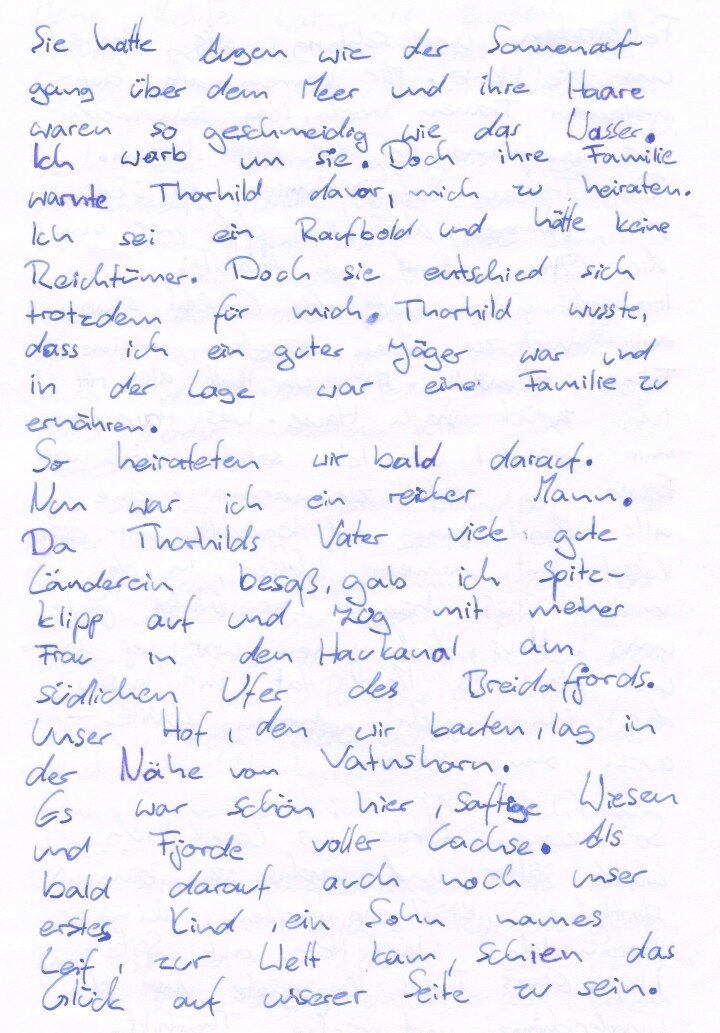 Sie hatte Augen wie der Sonnenauf-
gang über dem Meer und ihre Haare
waren so geschmeidig wie das Wasser.
Ich warb um sie. Doch ihre Familie
warnte Thorhild davor, mich zu heiraten.
Ich sei ein Raufbold und hätte keine
Reichtümer. Doch sie entschied sich
trotzdem für mich. Thorhild wusste,
dass ich ein guter Jäger war und
in der Lage war eine Familie zu
ernähren.
So heirateten wir bald darauf.
Nun war ich ein reicher Mann.
Da Thorhilds Vater viele gute
Länderein besaß, gab ich Spitz-
klipp auf und zog mit meiner
Frau in den Haukanal am
südlichen Ufer des Breidafjords.
Unser Hof, den wir bauten, lag in
der Nähe von Vatnshorn.
Es war schön hier, saftige Wiesen
und Fjorde voller Lachse. Als
bald darauf auch noch unser
erstes Kind, ein Sohn names
Leif, zur Welt kam, schien das
Glück auf unserer Seite zu sein.